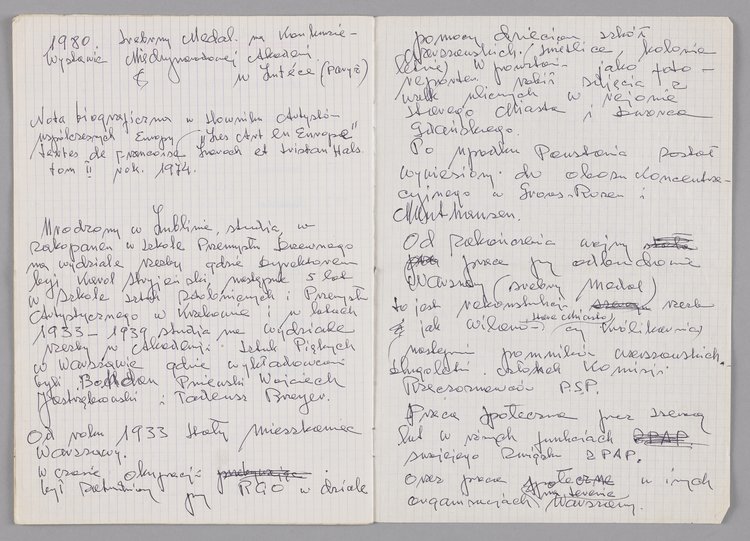 1980. Srebrny Medal na Konkursie-
Wystawie Międzynarodowej Akademi
w Lutéce (Paryż)
Nota biograficzna w słowniku Artystów
współczesnych Europy "Les Art en Europe"
textes de Francoise et Tristan Hals.
tom II rok. 1974.
Urodzony w Lublinie, studia w
Zakopanem w Szkole Przemysłu Drzewnego
na wydziale rzeźby gdzie Dyrektorem
był Karol Stryjeński, następnie 5 lat
w Szkole Sztuk Zdobniczych i Przemysłu
Artystycznego w Krakowie i w latach
1933-1939 studia na wydziale
rzeźby w Akademji Sztuk Pięknych
w Warszawie gdzie wykładowcami
byli Bohdan Pniewski Wojciech
Jastrzębowski i Tadeusz Breyer.
Od roku 1933 stały mieszkaniec
Warszawy.
W czasie okupacji
był zatrudniony przy RGO w dziale
pomocy dzieciom szkół
warszawskich (świetlice, kolonie
letnie) W powstaniu jako foto-
reporter robił zdjęcia z
walk ulicznych w rejonie
Starego Miasta i Dworca
Gdańskiego.
Po upadku Powstania został
wywieziony do obozu koncentra-
cyjnego w Gross-Rosen i
Mauthausen.
Od zakończenia wojny
praca przy odbudowie
Warszawy (srebrny medal)
to jest rekonstrukcji rzeźb
jak Wilanów, (Stare Miasto) czy Królikarnia,
następnie pomników warszawskich.
Długoletni członek Komisji
Rzeczoznawców P.S.P.
Praca społeczna przez szereg
lat w różnych funkcjach
swojego Związku ZPAP.
Oraz praca społeczna w innych
organizacjach na terenie Warszawy.